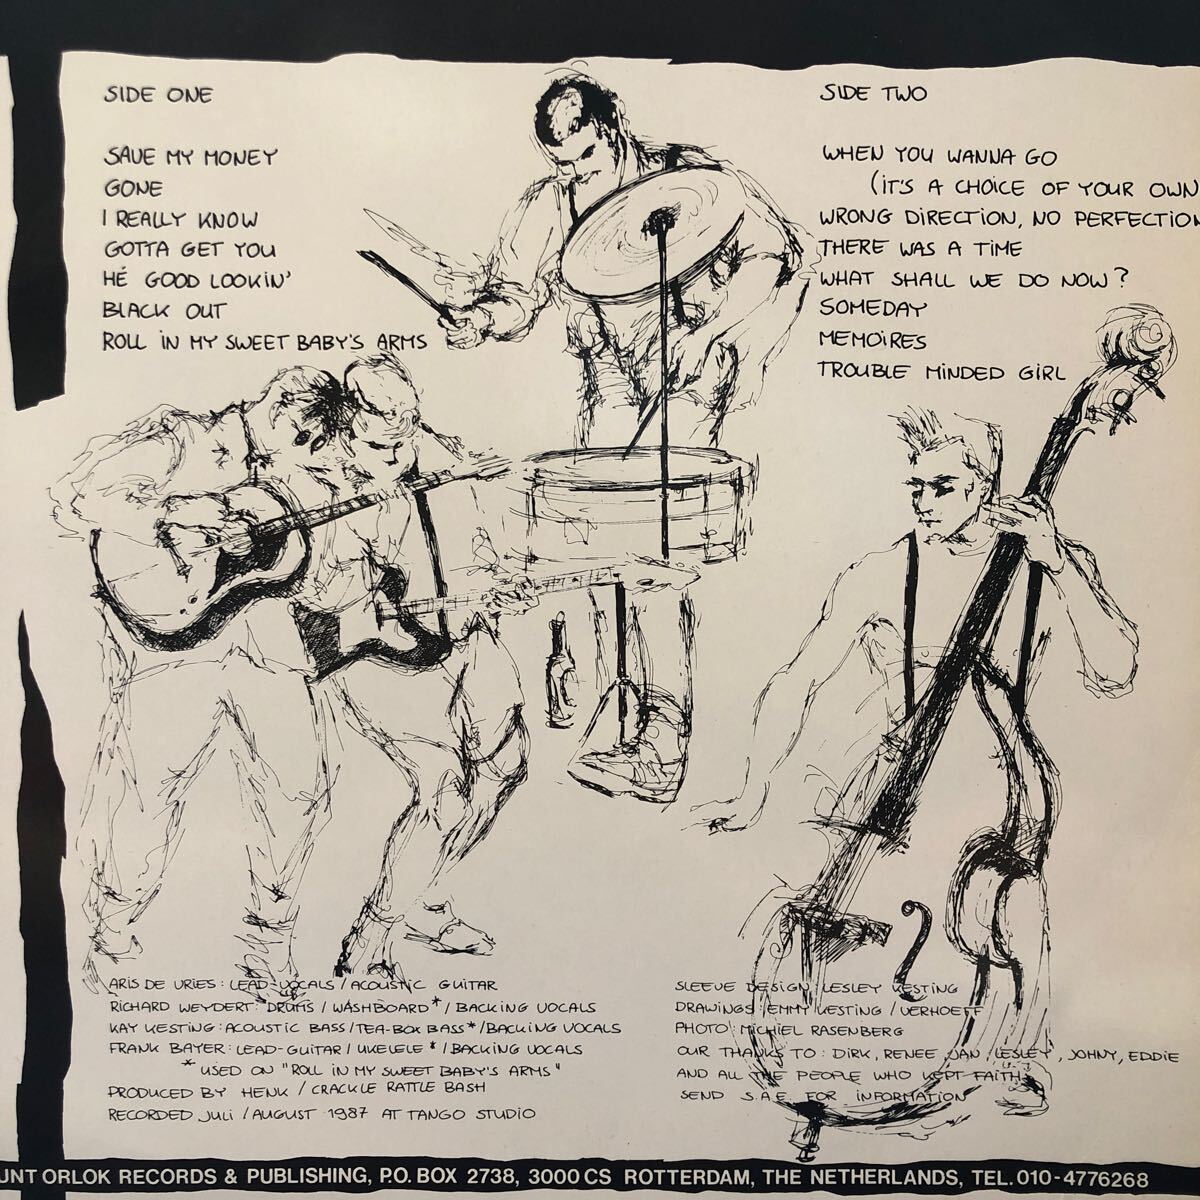 SIDE ONE
SAVE MY MONEY
GONE
I REALLY KNOW
GOTTA GET YOU
HÉ GOOD LOOKIN'
BLACK OUT
ROLL IN MY SWEET BABY'S ARMS
SIDE TWO
WHEN YOU WANNA GO
(IT'S A CHOICE OF YOUR OWN
WRONG DIRECTION, NO PERFECTION
THERE WAS A TIME
WHAT SHALL WE DO NOW?
SOMEDAY
MEMOIRES
TROUBLE MINDED GIRL
ARIS DE VRIES: LEAD-VOCALS / ACOUSTIC GUITAR
RICHARD WEYDERT: DRUMS / WASHBOARD* / BACKING VOCALS
KAY KESTING: ACOUSTIC BASS / TEA-BOX BASS* / BACKING VOCALS
FRANK BAYER: LEAD-GUITAR / UKELELE * / BACKING VOCALS
* USED ON "ROLL IN MY SWEET BABY'S ARMS"
PRODUCED BY HENK / CRACKLE RATTLE BASH
RECORDED JULI / AUGUST 1987 AT TANGO STUDIO
SLEEVE DESIGN: LESLEY KESTING
DRAWINGS: EMMY KESTING / VERHOEFF
PHOTO: MICHIEL RASENBERG
OUR THANKS TO: DIRK, RENEE, JAN, LESLEY, JOHNY, EDDIE
AND ALL THE PEOPLE WHO KEPT FAITH
SEND S.A.E. FOR INFORMATION
UNT ORLOK RECORDS & PUBLISHING, P.O. BOX 2738, 3000 CS ROTTERDAM, THE NETHERLANDS, TEL. 010-4776268